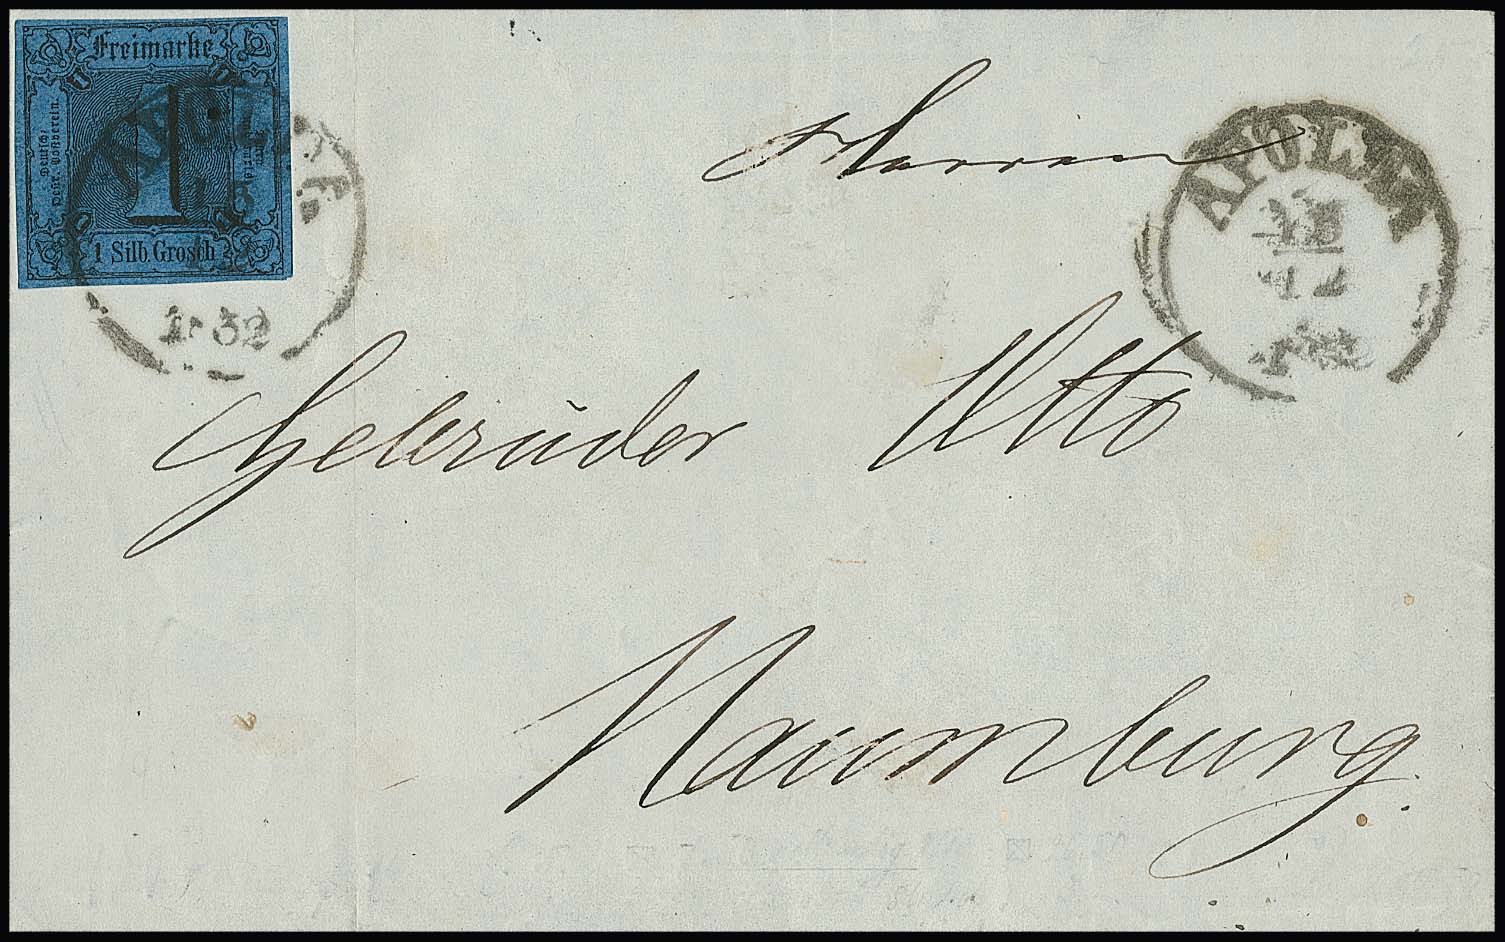 Freimarke
Deutsch:
Oestr. Postverein.
1 Silb. Grosch
1852
APOLDA
13
12
Herren
Gebrüder Otto
Naumburg.